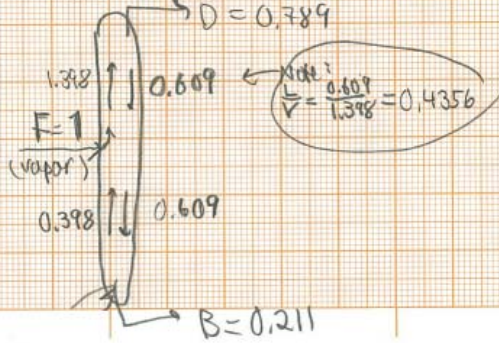 D = 0.789
1.398
0.609
Note:
L/V = 0.609/1.398 = 0.4356
F=1
(vapor)
0.398
0.609
B = 0.211